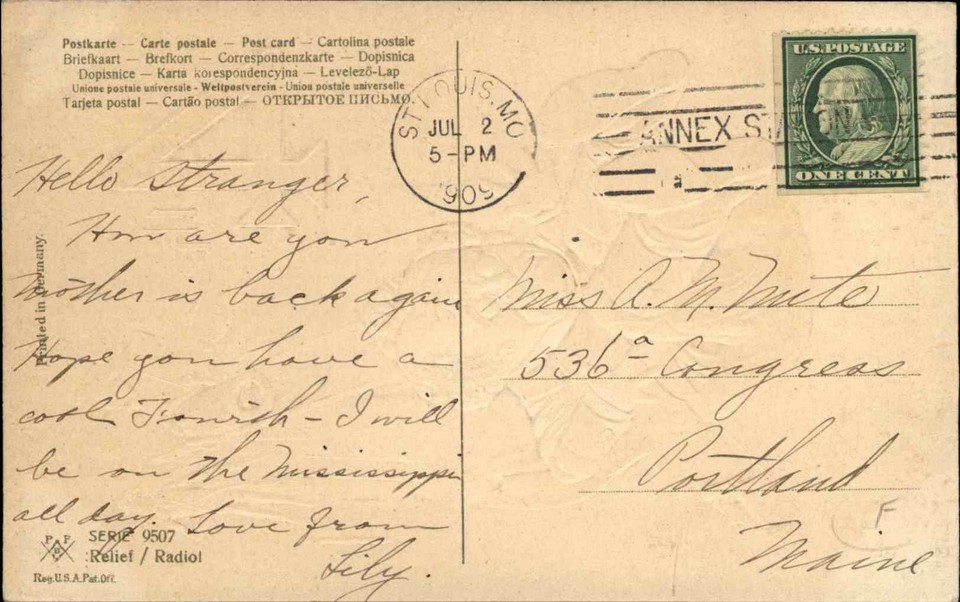 Postkarte — Carte postale — Post card — Cartolina postale
Briefkaart — Brefkort — Correspondenzkarte — Dopisnica
Dopisnice — Karta korespondencyjna — Levelező-Lap
Unione postale universale - Weltpostverein - Union postale universelle
Tarjeta postal — Cartão postal — ОТКРЫТОЕ ПИСЬМО.
ST. LOUIS, MO
JUL 2
5-PM
1909
ANNEX STATION
U.S. POSTAGE
ONE CENT
Hello Stranger,
How are you
Mother is back again
Hope you have a
cool Fourth - I will
be on the Mississippi
all day. Love from
Lily.
Miss A. M. Nute
536a Congress
Portland
Maine
F
Printed in Germany.
P F B
SERIE 9507
Relief / Radiol
Reg. U.S.A. Pat. Off.